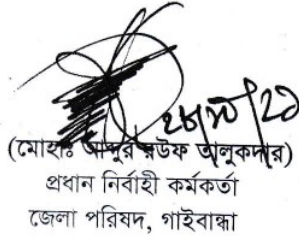 (মোহাঃ আব্দুর রউফ তালুকদার)
প্রধান নির্বাহী কর্মকর্তা
জেলা পরিষদ, গাইবান্ধা